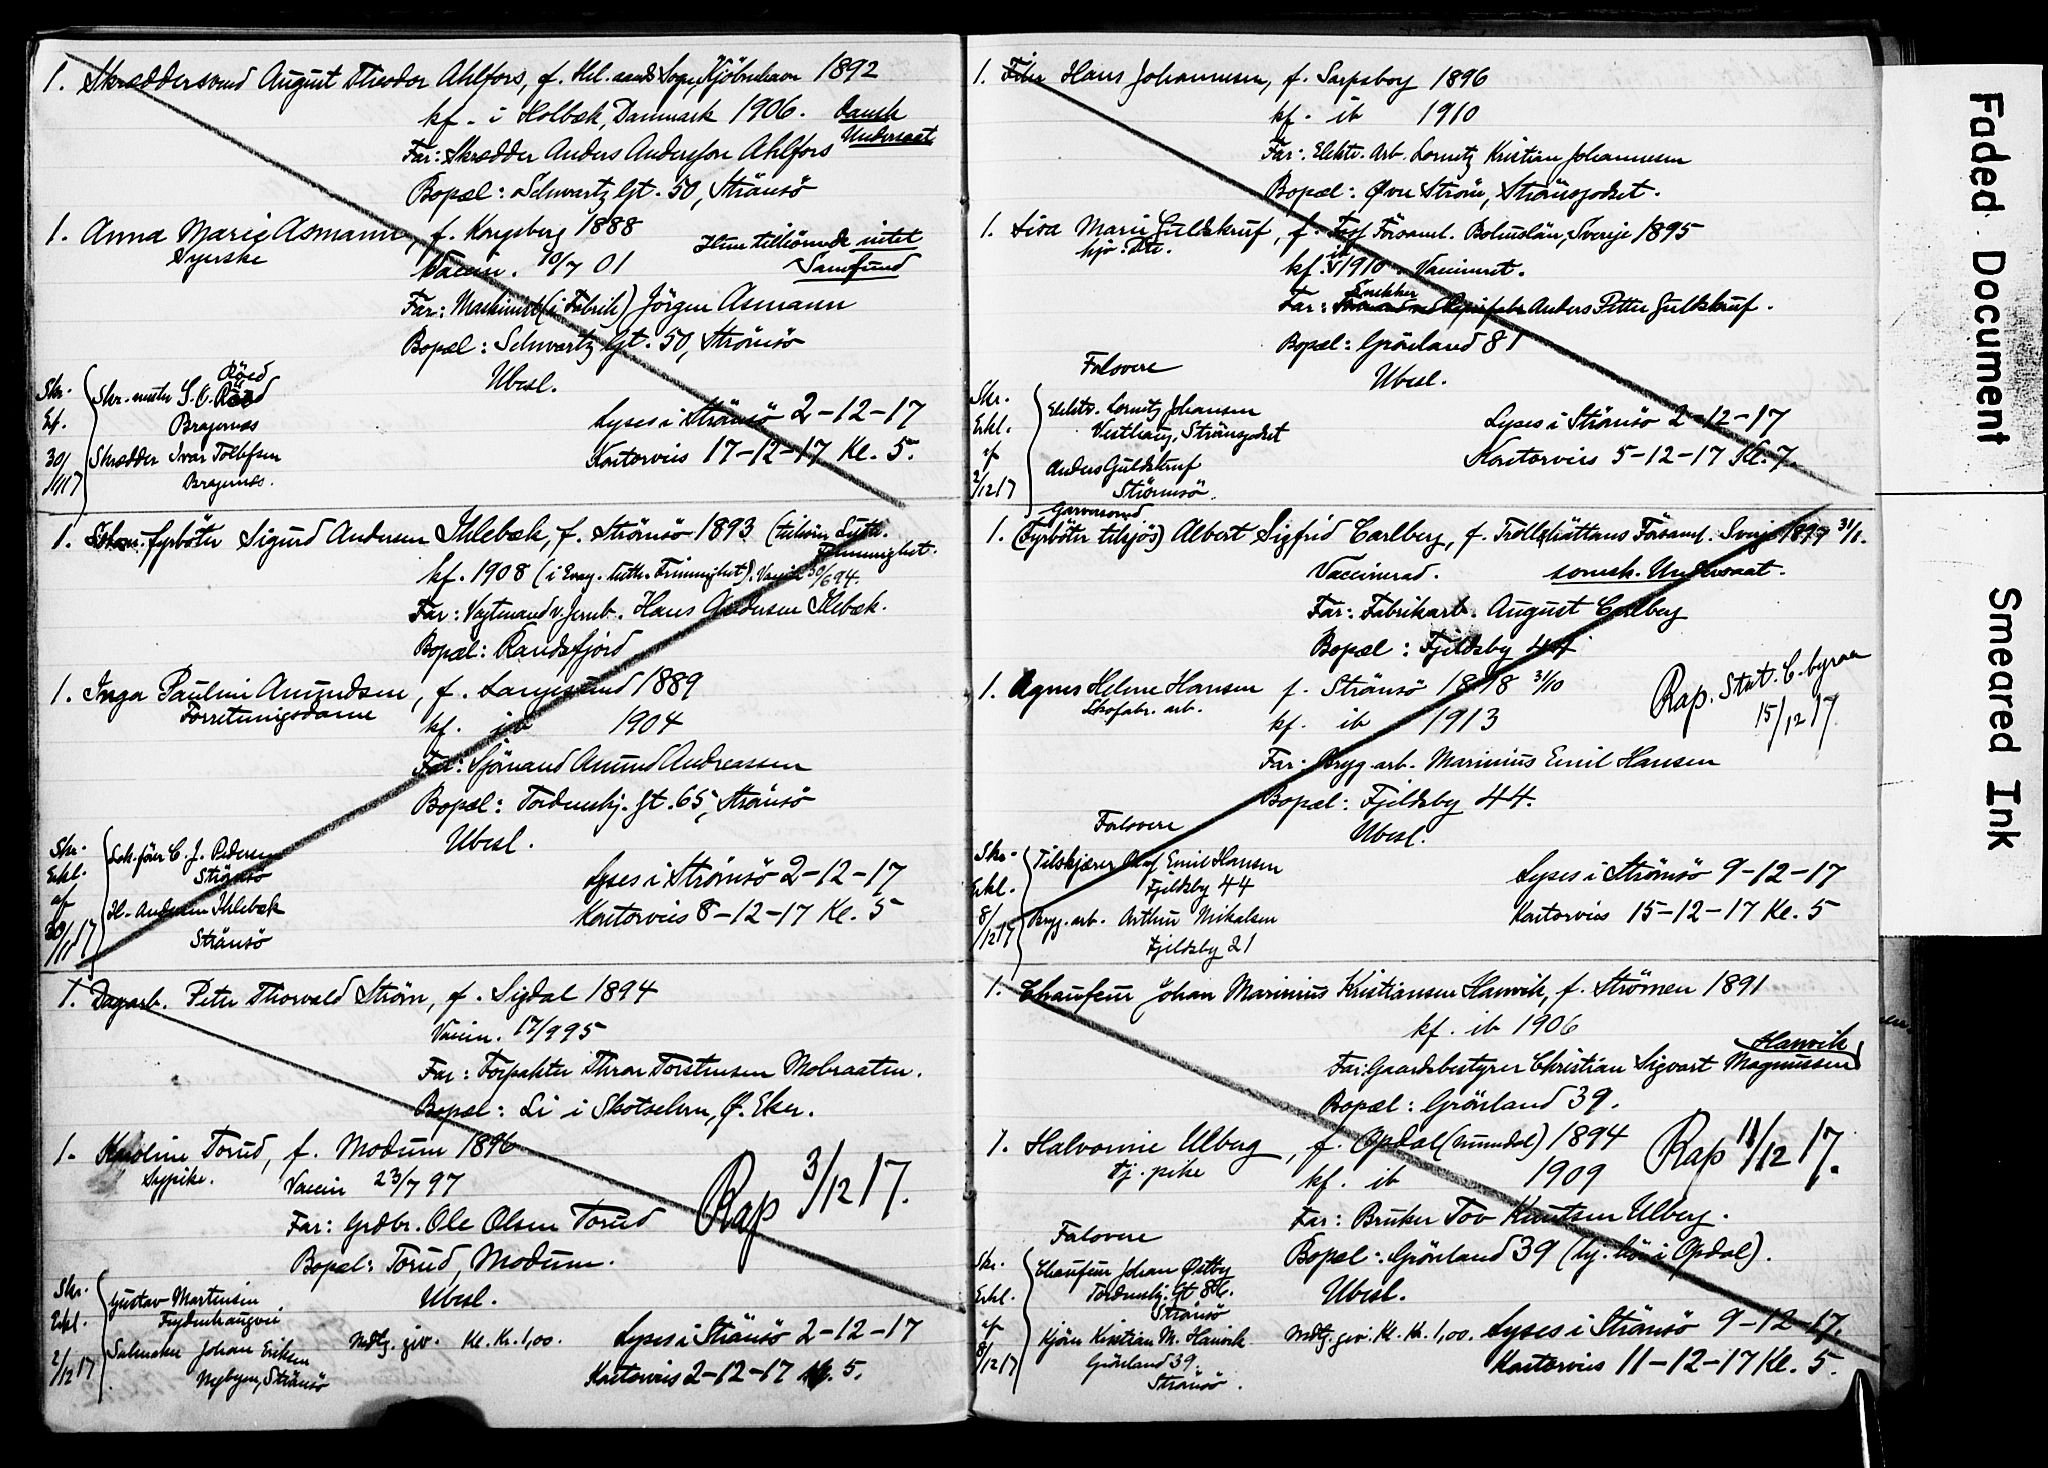 1. Skræddersvend August Theodor Ahlfors, f. Hel. aands Sogn, Kjöbenhavn 1892
kf. i Holbæk, Danmark 1906. Dansk
Undersaat
Far: Skrædder Anders Andersson Ahlfors
Bopæl: Schwartz Gt. 50, Strömsö
1. Anna Marie Asmann, f. Kongsberg 1888
Syerske
Vaccin. 10/7 01 Hun tilhörende intet
Samfund
Far: Maskinist (i Fabrik) Jörgen Asmann
Bopæl: Schwartz Gt. 50, Strömsö
Ubesl.
Skr.
Erkl.
30/11 17
Skr.-mester S. C. Röed
Bragernes
Skrædder Ivar Tollefsen
Bragernes.
Lyses i Strömsö 2-12-17
Kontorvies 17-12-17 Kl. 5.
1. fyrböter Sigurd Andersen Ihlebæk, f. Strömsö 1893 (tilhörer Luth.
Frimenighet.
kf. 1908 (i Evang. luth. Frimenighet). Vaccin 30/6 94.
Far: Vogtmand v. Jernb. Hans Andersen Ihlebæk.
Bopæl: Randsfjord
1. Inga Pauline Amundsen, f. Langesund 1889
Forretningsdame
kf. ib 1904
Far: Sjömand Amund Andreassen
Bopæl: Tordenskj. Gt. 65, Strömsö
Ubesl.
Skr.
Erkl.
af
30/11 17
C. J. Pedersen
Strömsö
H. Andersen Ihlebæk
Strömsö
Lyses i Strömsö 2-12-17
Kontorvies 8-12-17 Kl. 5
1. Dagarb. Peter Thorvald Ström, f. Sigdal 1894
Vaccin. 17/9 95
Far: Forpakter Thron Torstensen Mobraaten.
Bopæl: Li i Skotselven, Ø. Eker.
1. Karoline Torud, f. Modum 1896
Sypike.
Vaccin 23/7 97
Far: Grdbr. Ole Olsen Torud
Bopæl: Torud, Modum.
Rap 3/12 17.
Ubesl.
Skr.
Erkl.
2/12 17
Gustav Martinsen
Frydenhaugvei
Johan Eriksen
Nybyen, Strömsö
Mdtg. giv. Kl. Kr. 1,00. Lyses i Strömsö 2-12-17
Kontorvies 2-12-17 Kl. 5.
1. Hans Johannesen, f. Sarpsborg 1896
kf. ib 1910
Far: Elektr. Arb. Lorentz Kristian Johannesen
Bopæl: Øvre Ström, Strömsgodset.
1. Lisa Marie Guldskruf, f. Foss Församl. Bohuslän, Sverige 1895
hjv. Dtr.
kf. ib 1910. Vaccineret.
Snekker
Far: Anders Petter Guldskruf.
Bopæl: Grönland 81
Forlovere
Ubesl.
Skr.
Erkl.
af
2/12 17
Elektr. Lorentz Johansen
Vesthaug, Strömsgodset
Anders Guldskruf
Strömsö.
Lyses i Strömsö 2-12-17
Kontorvies 5-12-17 Kl. 7.
Garversvend
1. (Fyrböter tilsjös) Albert Sigfrid Carlberg, f. Trollhättans Församl. Sverige 1897 31/1.
Vaccinerad. svensk. Undersaat.
Far: Fabrikarb. August Carlberg
Bopæl: Fjeldsby 44
1. Agnes Helene Hansen f. Strömsö 1898 31/10
Skofabr. arb.
kf. ib 1913
Rap. Stat. C. byraa
15/12 17.
Far: Bryg. arb. Marinius Emil Hansen
Bopæl: Fjeldsby 44.
Forlovere
Ubesl.
Skr.
Erkl.
8/12 17
Tilskjærer Olaf Emil Hansen
Fjeldsby 44
Bryg. arb. Arthur Mikalsen
Fjeldsby 21
Lyses i Strömsö 9-12-17
Kontorvies 15-12-17 Kl. 5
1. Chauffeur Johan Marinius Kristiansen Hanvik, f. Strömen 1891
kf. ib 1906
Hanvik
Far: Gaardsbestyrer Christian Sigvart Magnussen
Bopæl: Grönland 39.
1. Halvorine Ulberg, f. Opdal (Numedal) 1894
tj. pike
kf. ib 1909
Rap 11/12 17.
Far: Bruker Tov Knutsen Ulberg.
Bopæl: Grönland 39 (hj. hör. i Opdal).
Forlovere
Ubesl.
Skr.
Erkl.
af
8/12 17
Chauffeur Johan Østby
Tordenskj. Gt 86.
Strömsö
Kjörer Kristian M. Hanvik
Grönland 39.
Strömsö.
Mdtg. giv. Kl. Kr. 1,00. Lyses i Strömsö 9-12-17.
Kontorvies 11-12-17 Kl. 5.
Faded Document
Smeared Ink